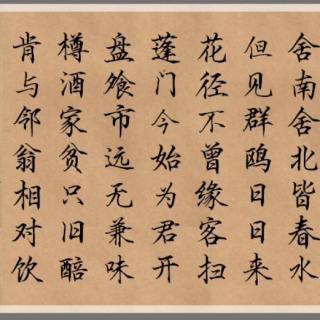 舍南舍北皆春水
但见群鸥日日来
花径不曾缘客扫
蓬门今始为君开
盘飧市远无兼味
樽酒家贫只旧醅
肯与邻翁相对饮